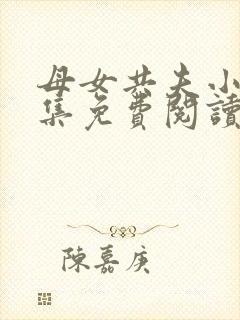 母女共夫小
集免費閱讀
陳嘉庚